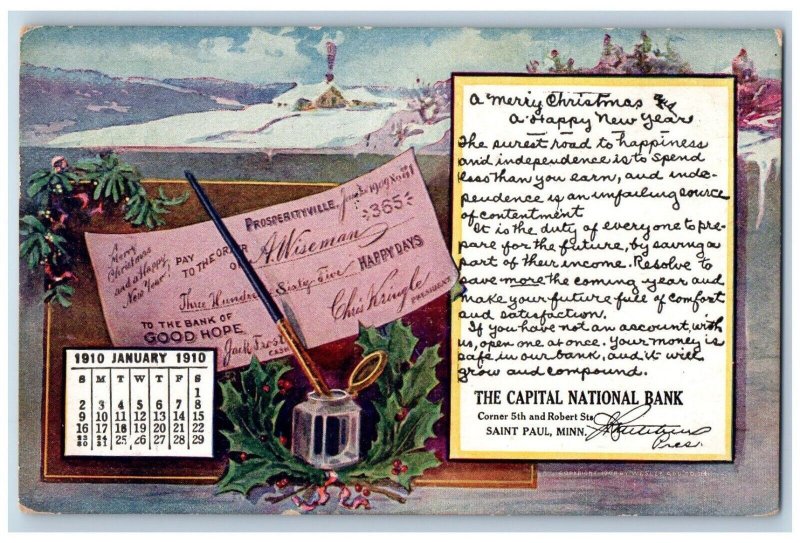 A Merry Christmas and
A Happy New Year
The surest road to happiness
and independence is to spend
less than you earn, and inde-
pendence is an unfailing source
of contentment
It is the duty of everyone to pre-
pare for the future, by saving a
part of their income. Resolve to
save more the coming year and
make your future full of comfort
and satisfaction.
If you have not an account, with
us, open one at once. Your money is
safe in our bank, and it will
grow and compound.
THE CAPITAL NATIONAL BANK
Corner 5th and Robert Sts
SAINT PAUL, MINN.
Pres.
Merry
Christmas
and a Happy
New Year
PROSPERITYVILLE, 1909
365
PAY
TO THE ORDER
OF A. Wiseman
Three Hundred Sixty-Five HAPPY DAYS
TO THE BANK OF
GOOD HOPE
Chris Kringle
PRESIDENT
Jack Frost
1910 JANUARY 1910
S M T W T F S
1
2 3 4 5 6 7 8
9 10 11 12 13 14 15
16 17 18 19 20 21 22
23/30 24/31 25 26 27 28 29